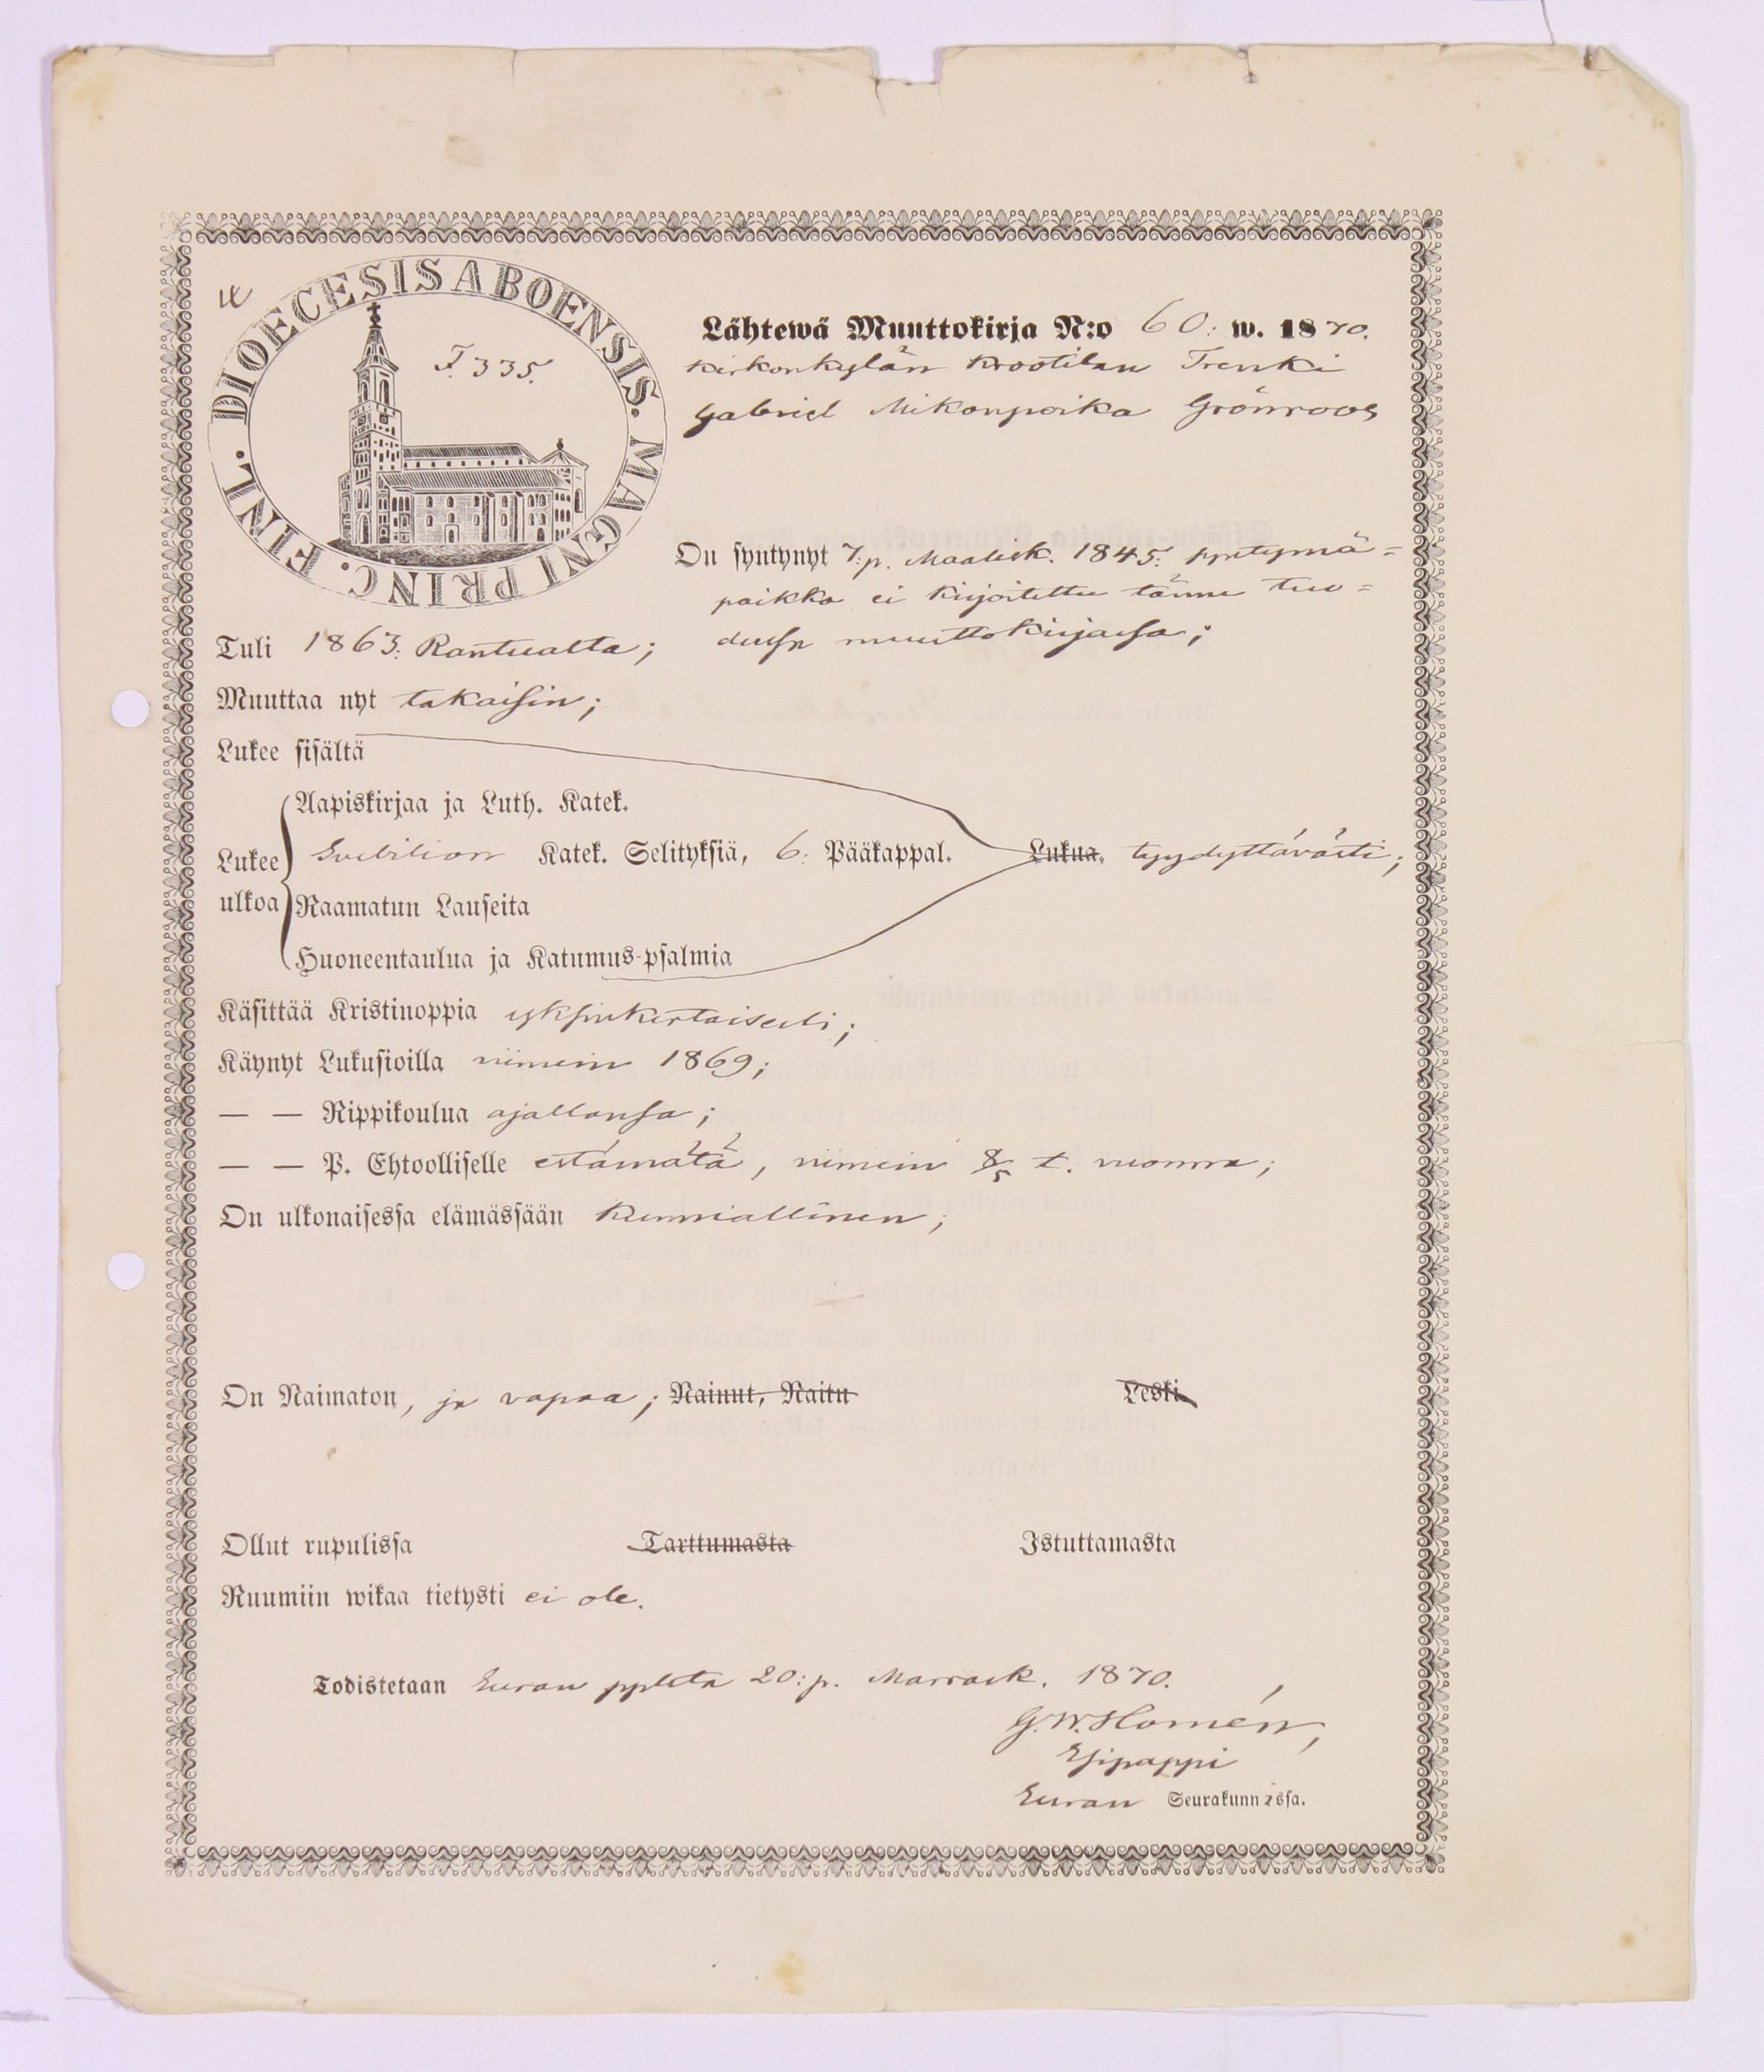 DIOECESIS ABOENSIS. MAGNI PRINC. FINL.
F. 335.
Lähtewä Muuttokirja N:o 60: w. 1870.
Kirkonkylän Krootilan Trenki
Gabriel Mikonpoika Grönroos
On syntynyt 7:p. Maalisk. 1845: syntymä=
paikka ei kirjoitettu tänne tuo=
dussa muuttokirjassa;
Tuli 1863: Rantualta;
Muuttaa nyt takaisin;
Lukee sisältä
Lukee ulkoa
Aapiskirjaa ja Luth. Katek.
Svebilion Katek. Selityksiä, 6: Pääkappal. Lukua. tyydyttävästi;
Raamatun Lauseita
Huoneentaulua ja Katumus-psalmia
Käsittää Kristinoppia yksinkertaisesti;
Käynyt Lukusioilla viimein 1869;
— — Rippikoulua ajallansa;
— — P. Ehtoolliselle estämätä, viimein 8/5 t. vuonna;
On ulkonaisessa elämässään kunniallinen;
On Naimaton, ja vapaa; Nainut, Naitu Leski.
Ollut rupulissa Tarttumasta Istuttamasta
Ruumiin wikaa tietysti ei ole.
Todistetaan Euran pplsta 20:p. Marrask. 1870.
G. W. Homén,
Esipappi
Euran Seurakunnissa.